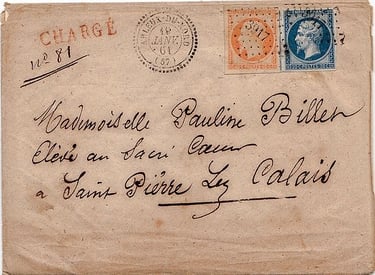 CHARGÉ
nº 81
ARLEUX-DU-NORD
19
JANV.
61
(57)
Mademoiselle Pauline Billet
Elève au Sacré Cœur
a Saint Pierre Lez Calais